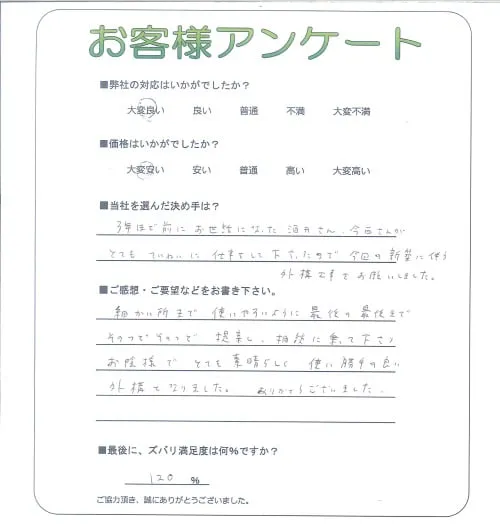 お客様アンケート
■弊社の対応はいかがでしたか？
大変良い 良い 普通 不満 大変不満
■価格はいかがでしたか？
大変安い 安い 普通 高い 大変高い
■当社を選んだ決め手は？
3年ほど前に お世話になった 酒井さん、今西さんが
とても ていねいに 仕事をして下さったので 今回の 新築に伴う
外構工事をお願いしました。
■ご感想・ご要望などをお書き下さい。
細かい所まで 使いやすいように 最後の最後まで
そのつどそのつど 提案し、相談に乗って下さり
お陰様で とても 素晴らしく 使い勝手の良い
外構となりました。 ありがとうございました。
■最後に、ズバリ満足度は何%ですか？
120 %
ご協力頂き、誠にありがとうございました。